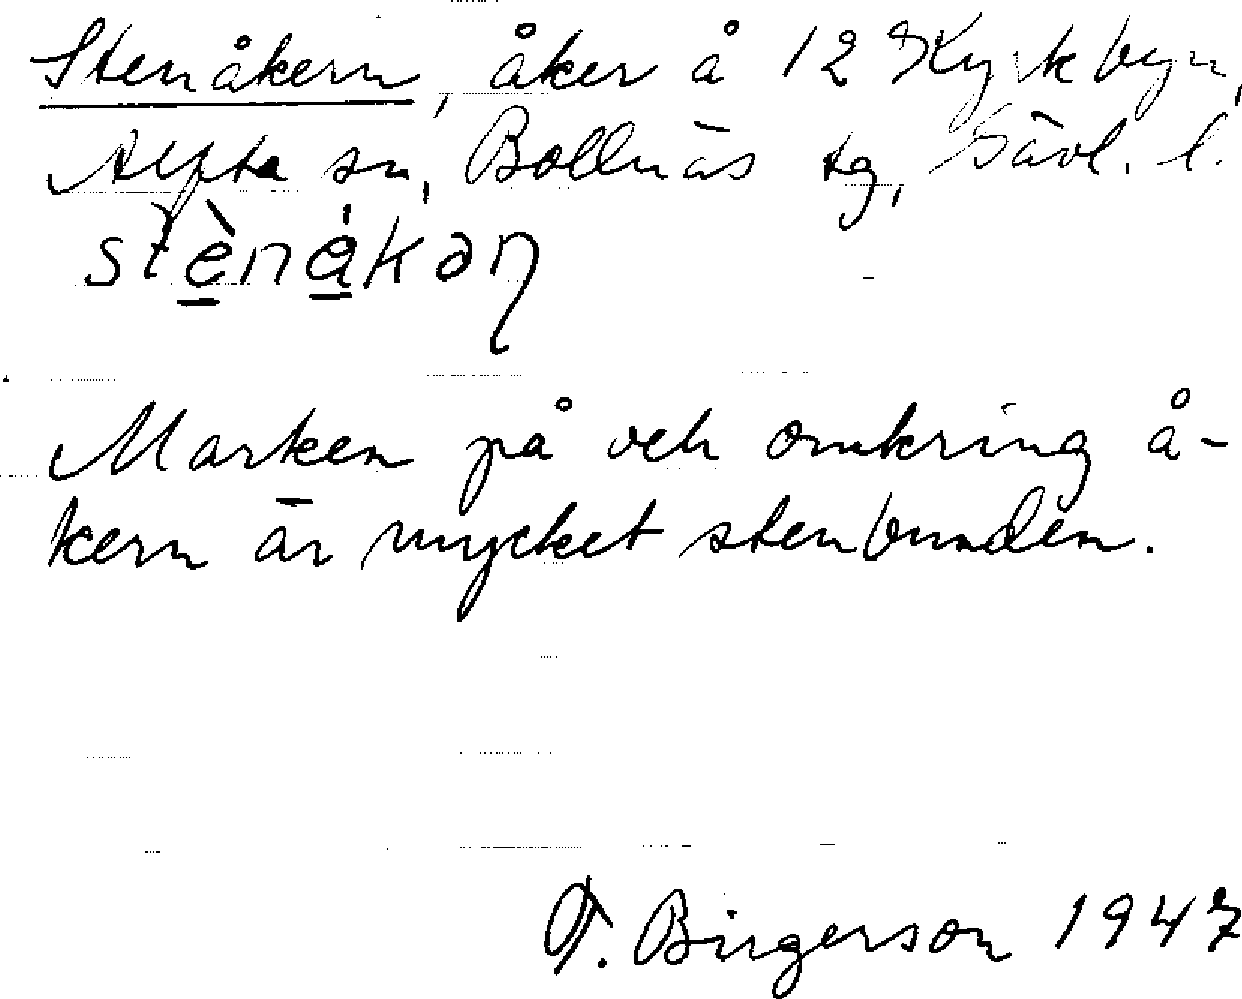 Stenåkern, åker å 12 Kyrkbyn,
Alfta sn, Bollnäs tg, Gävl. l.
stè̠nå̠kəɳ
Marken på och omkring å-
kern är mycket stenbunden.
T. Birgerson 1947